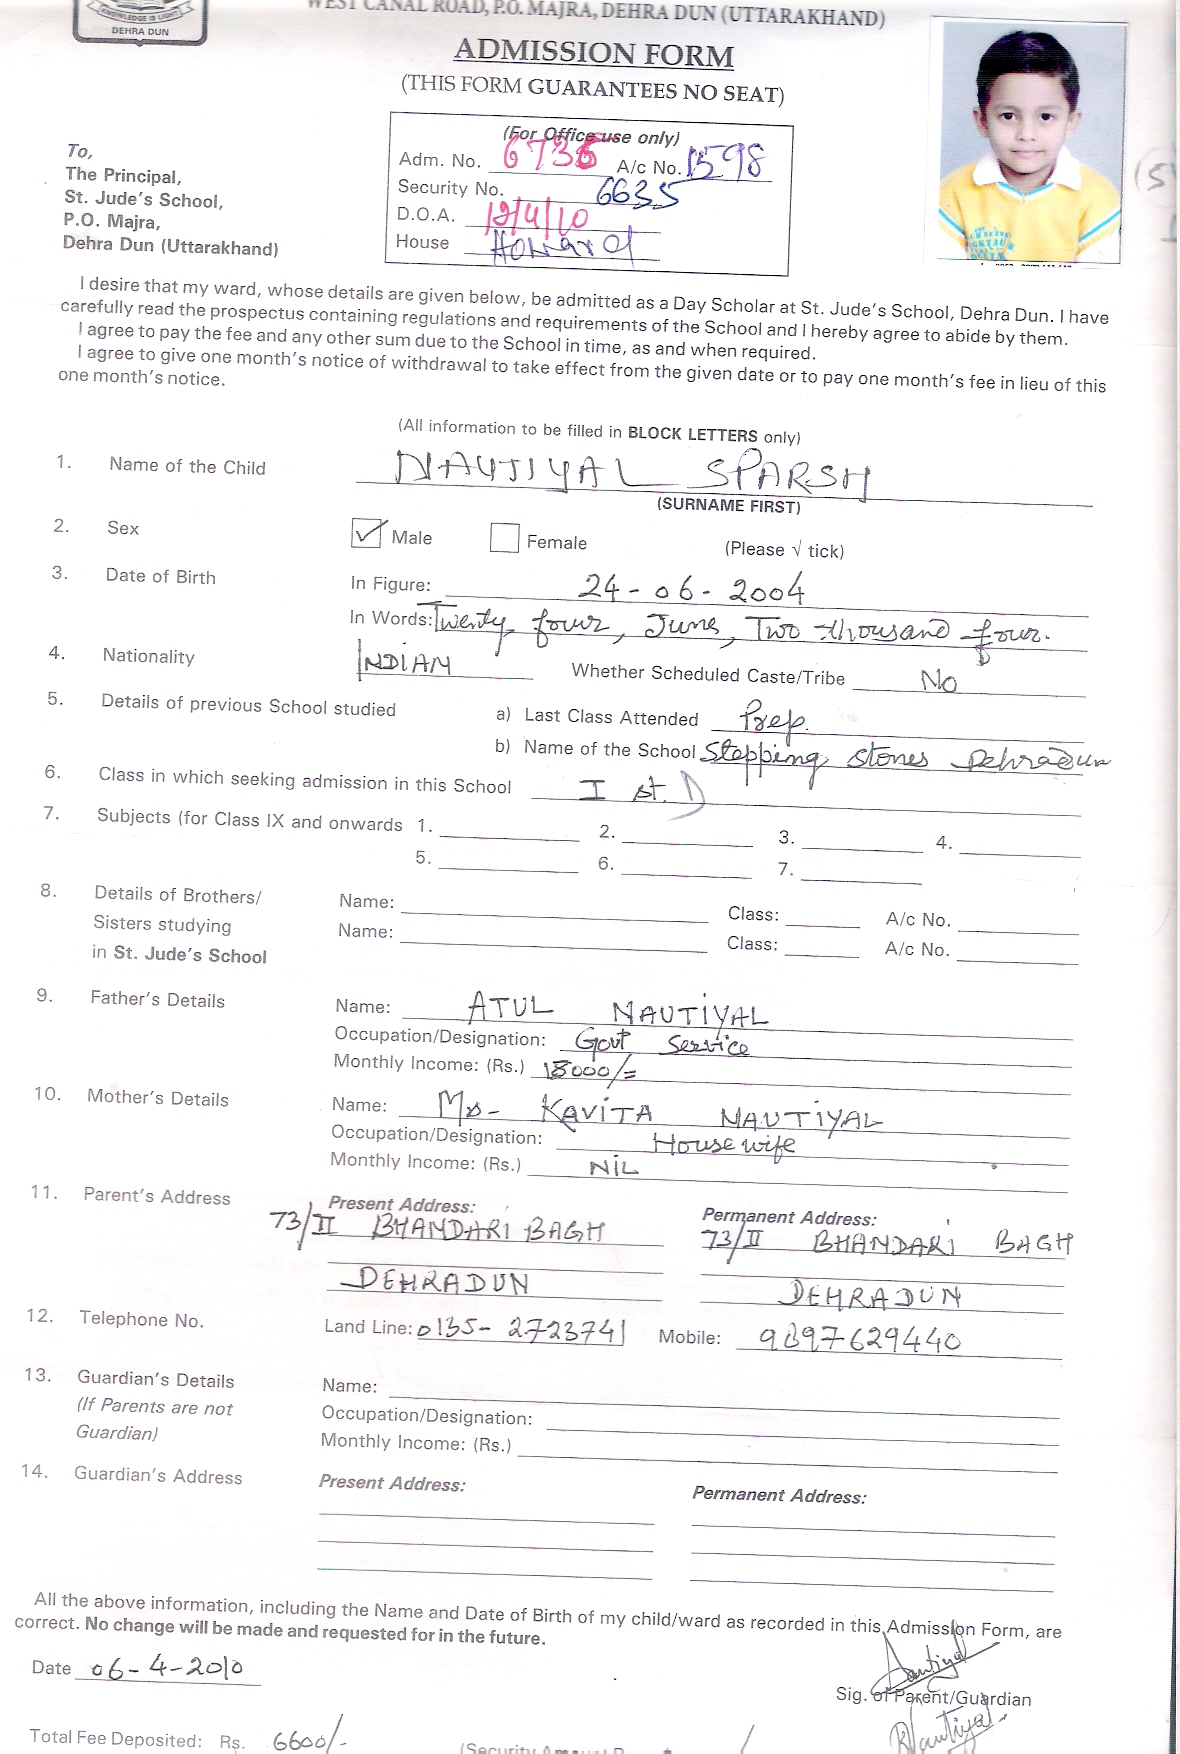 KNOWLEDGE IS LIGHT
DEHRA DUN
WEST CANAL ROAD, P.O. MAJRA, DEHRA DUN (UTTARAKHAND)
ADMISSION FORM
(THIS FORM GUARANTEES NO SEAT)
(For Office use only)
Adm. No. 6735 A/c No. 1598
Security No. 6635
D.O.A. 12/4/10
House Howard
To,
The Principal,
St. Jude's School,
P.O. Majra,
Dehra Dun (Uttarakhand)
I desire that my ward, whose details are given below, be admitted as a Day Scholar at St. Jude's School, Dehra Dun. I have
carefully read the prospectus containing regulations and requirements of the School and I hereby agree to abide by them.
I agree to pay the fee and any other sum due to the School in time, as and when required.
I agree to give one month's notice of withdrawal to take effect from the given date or to pay one month's fee in lieu of this
one month's notice.
(All information to be filled in BLOCK LETTERS only)
1. Name of the Child NAUTIYAL SPARSH
(SURNAME FIRST)
2. Sex Male Female (Please √ tick)
3. Date of Birth In Figure: 24-06-2004
In Words: Twenty four, June, Two thousand four.
4. Nationality INDIAN Whether Scheduled Caste/Tribe No
5. Details of previous School studied a) Last Class Attended Prep.
b) Name of the School Stepping Stones Dehradun
6. Class in which seeking admission in this School I st. D
7. Subjects (for Class IX and onwards 1. 2. 3. 4.
5. 6. 7.
8. Details of Brothers/ Name: Class: A/c No.
Sisters studying Name: Class: A/c No.
in St. Jude's School
9. Father's Details Name: ATUL NAUTIYAL
Occupation/Designation: Govt Service
Monthly Income: (Rs.) 18000/=
10. Mother's Details Name: Mrs- KAVITA NAUTIYAL
Occupation/Designation: House wife
Monthly Income: (Rs.) NiL
11. Parent's Address Present Address: Permanent Address:
73/II BHANDARI BAGH 73/II BHANDARI BAGH
DEHRADUN DEHRADUN
12. Telephone No. Land Line: 0135-2723741 Mobile: 9897629440
13. Guardian's Details Name:
(If Parents are not Occupation/Designation:
Guardian) Monthly Income: (Rs.)
14. Guardian's Address Present Address: Permanent Address:
All the above information, including the Name and Date of Birth of my child/ward as recorded in this Admission Form, are
correct. No change will be made and requested for in the future.
Date 06-4-2010
Sig. of Parent/Guardian
Total Fee Deposited: Rs. 6600/-